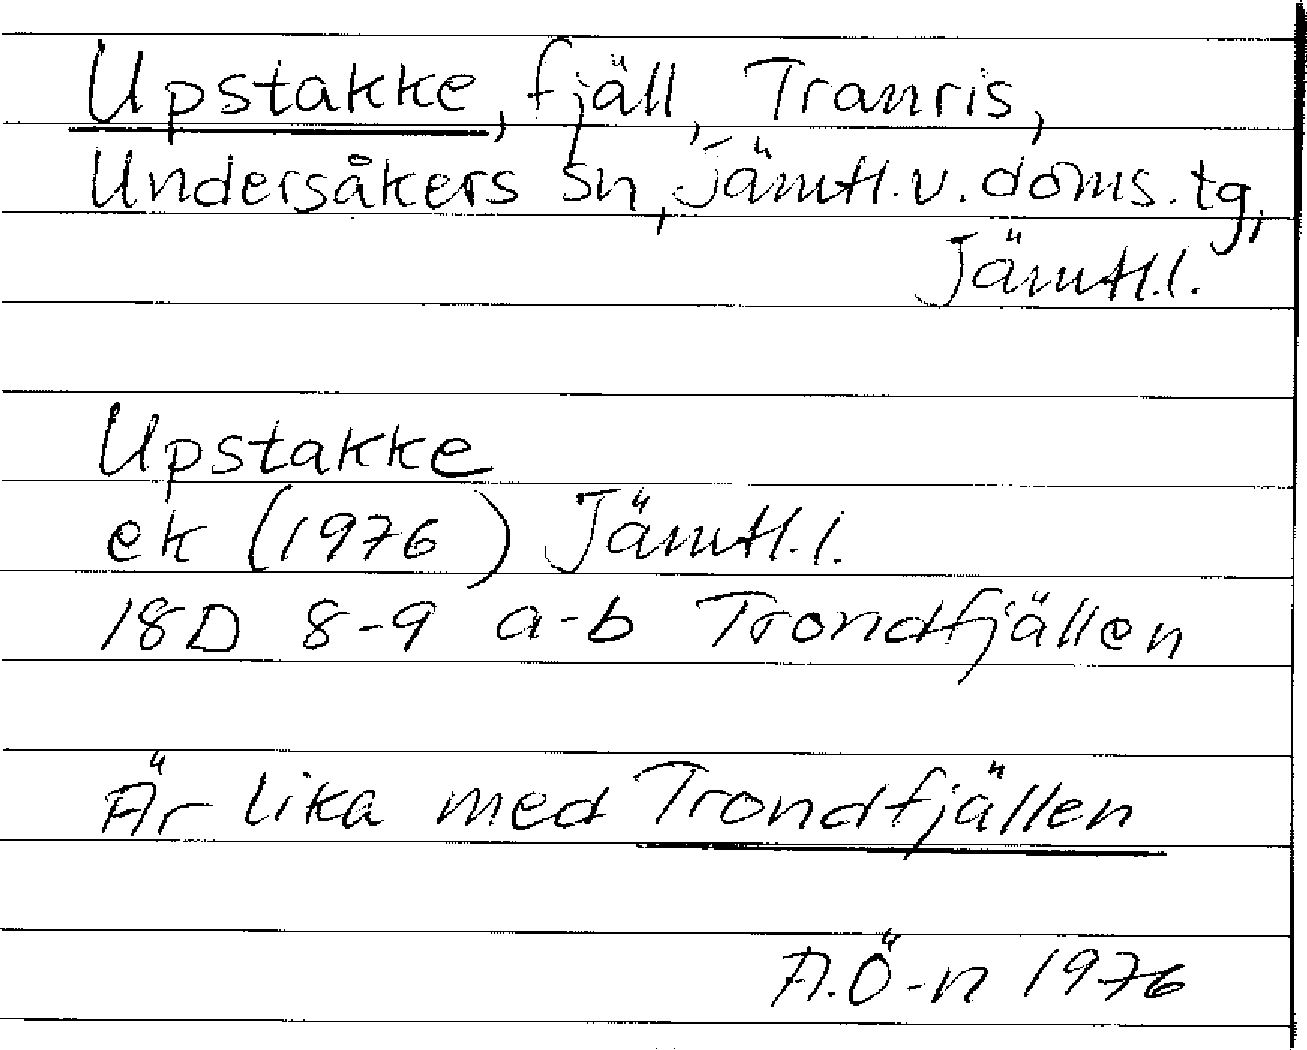 Upstakke, fjäll, Tranris,
Undersåkers sn, Jämtl.v.doms.tg,
Jämtl.l.
Upstakke
ek (1976) Jämtl.l.
18D 8-9 a-b Trondfjällen
Är lika med Trondfjällen
A.Ö-n 1976